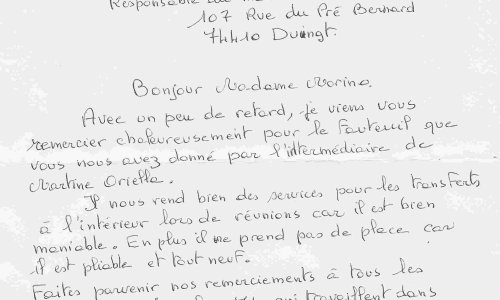 Responsable
107 Rue du Pré Bernard
74410 Duingt.
Bonjour Madame Morine.
Avec un peu de retard, je viens vous
remercier chaleureusement pour le fauteuil que
vous nous avez donné par l'intermédiaire de
Martine Oriella.
Il nous rend bien des services pour les transferts
à l'intérieur lors de réunions car il est bien
maniable. En plus il ne prend pas de place car
il est pliable et tout neuf.
Faites parvenir nos remerciements à tous les
qui travaillent dans